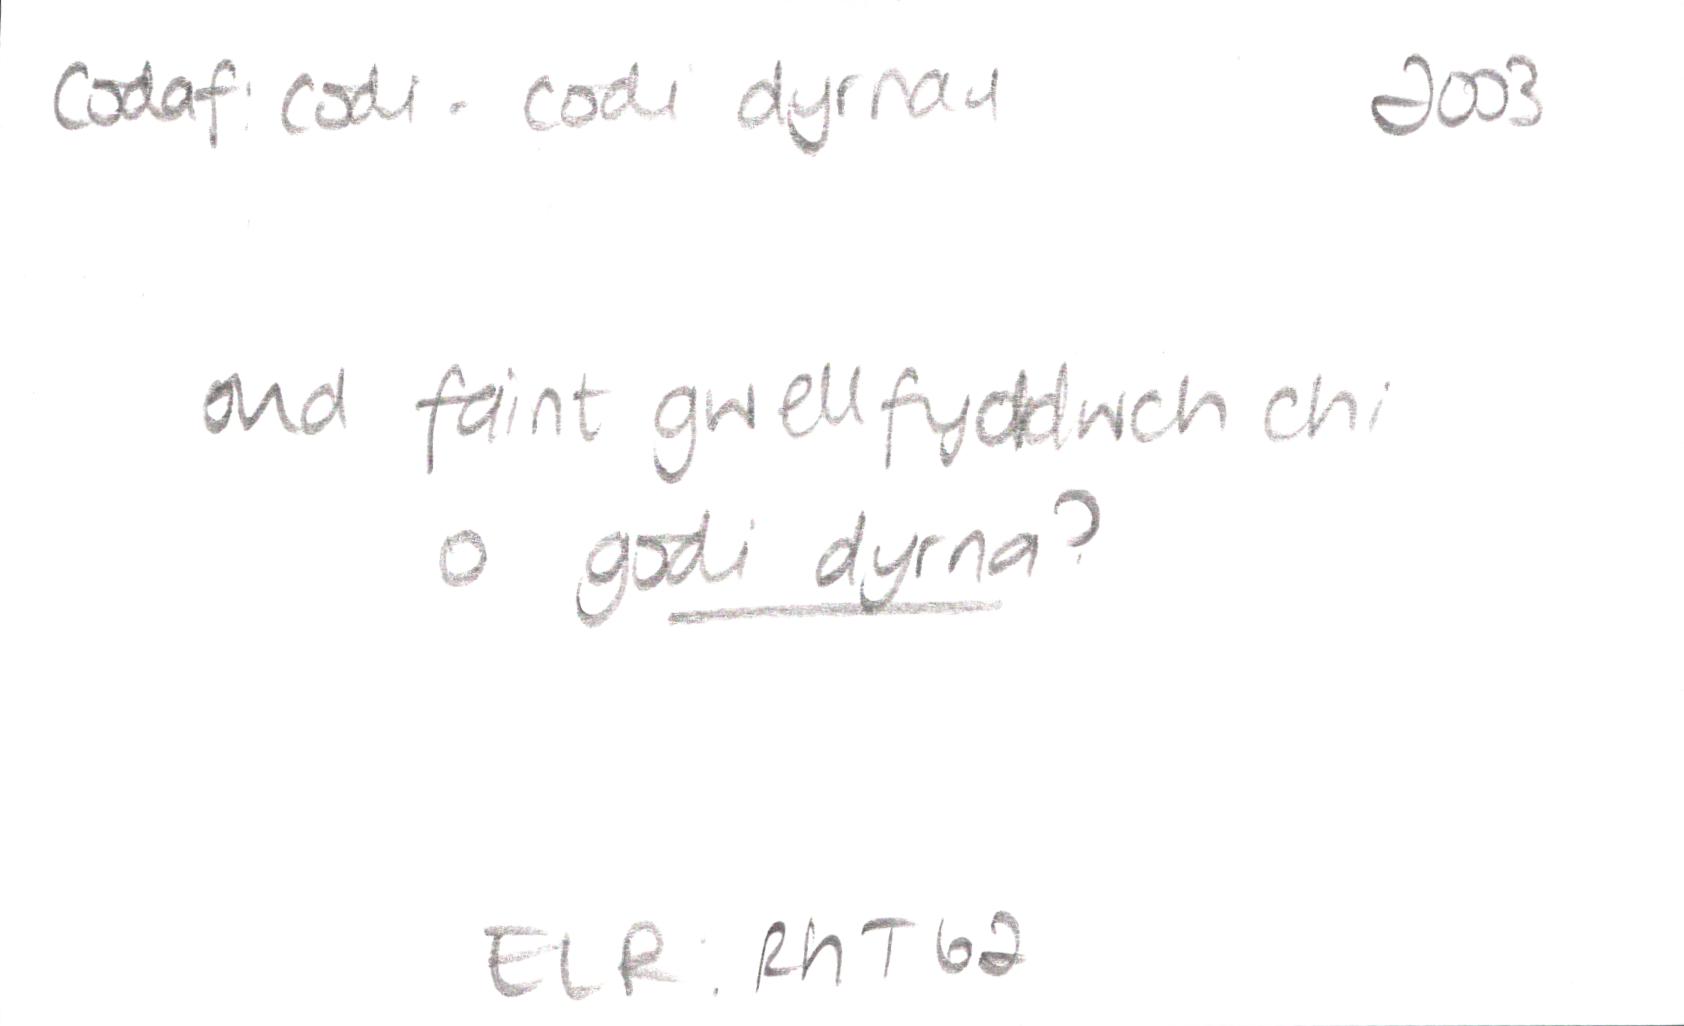 codaf: codi. codi dyrnau 2003
ond faint gwell fyddwch chi
o godi dyrna?
ELR: RhT 62